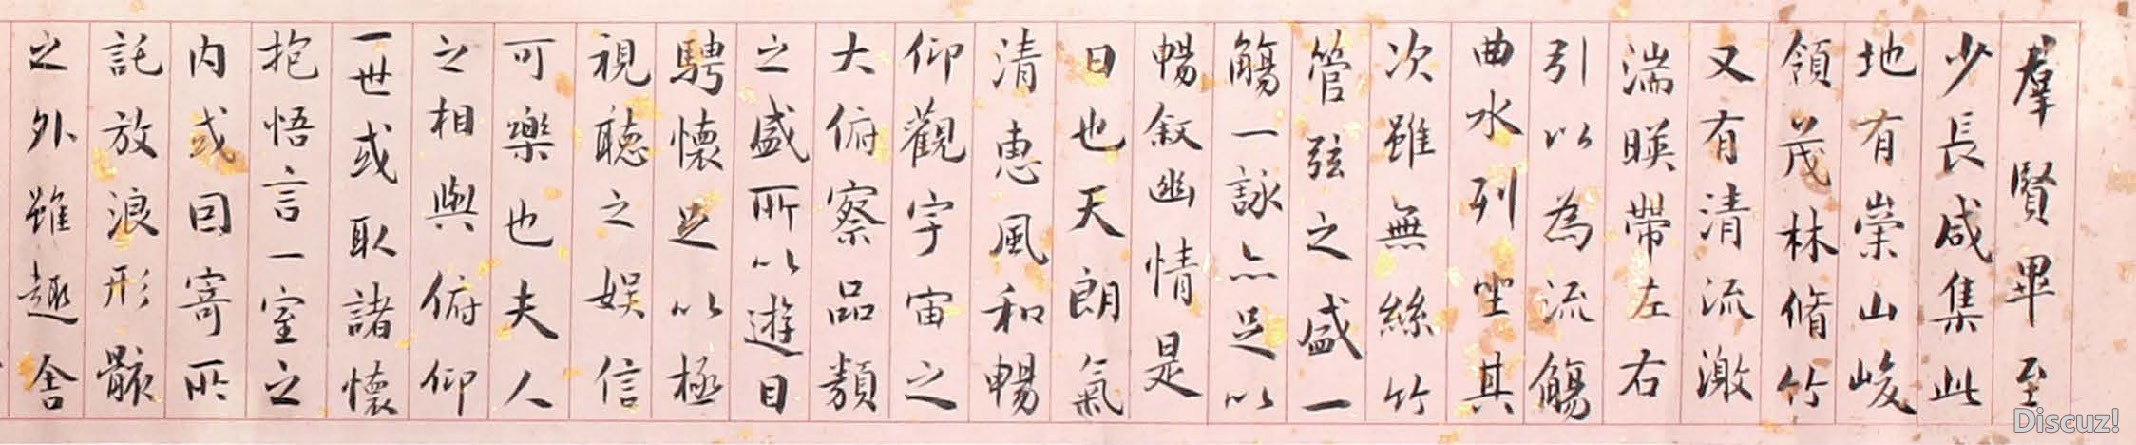 羣賢畢至
少長咸集此
地有崇山峻
領茂林脩竹
又有清流激
湍暎帶左右
引以為流觴
曲水列坐其
次雖無絲竹
管弦之盛一
觴一詠亦足以
暢叙幽情是
日也天朗氣
清惠風和暢
仰觀宇宙之
大俯察品類
之盛所以遊目
騁懷足以極
視聽之娱信
可樂也夫人
之相與俯仰
一世或取諸懷
抱悟言一室之
内或因寄所
託放浪形骸
之外雖趣舍
Discuz!